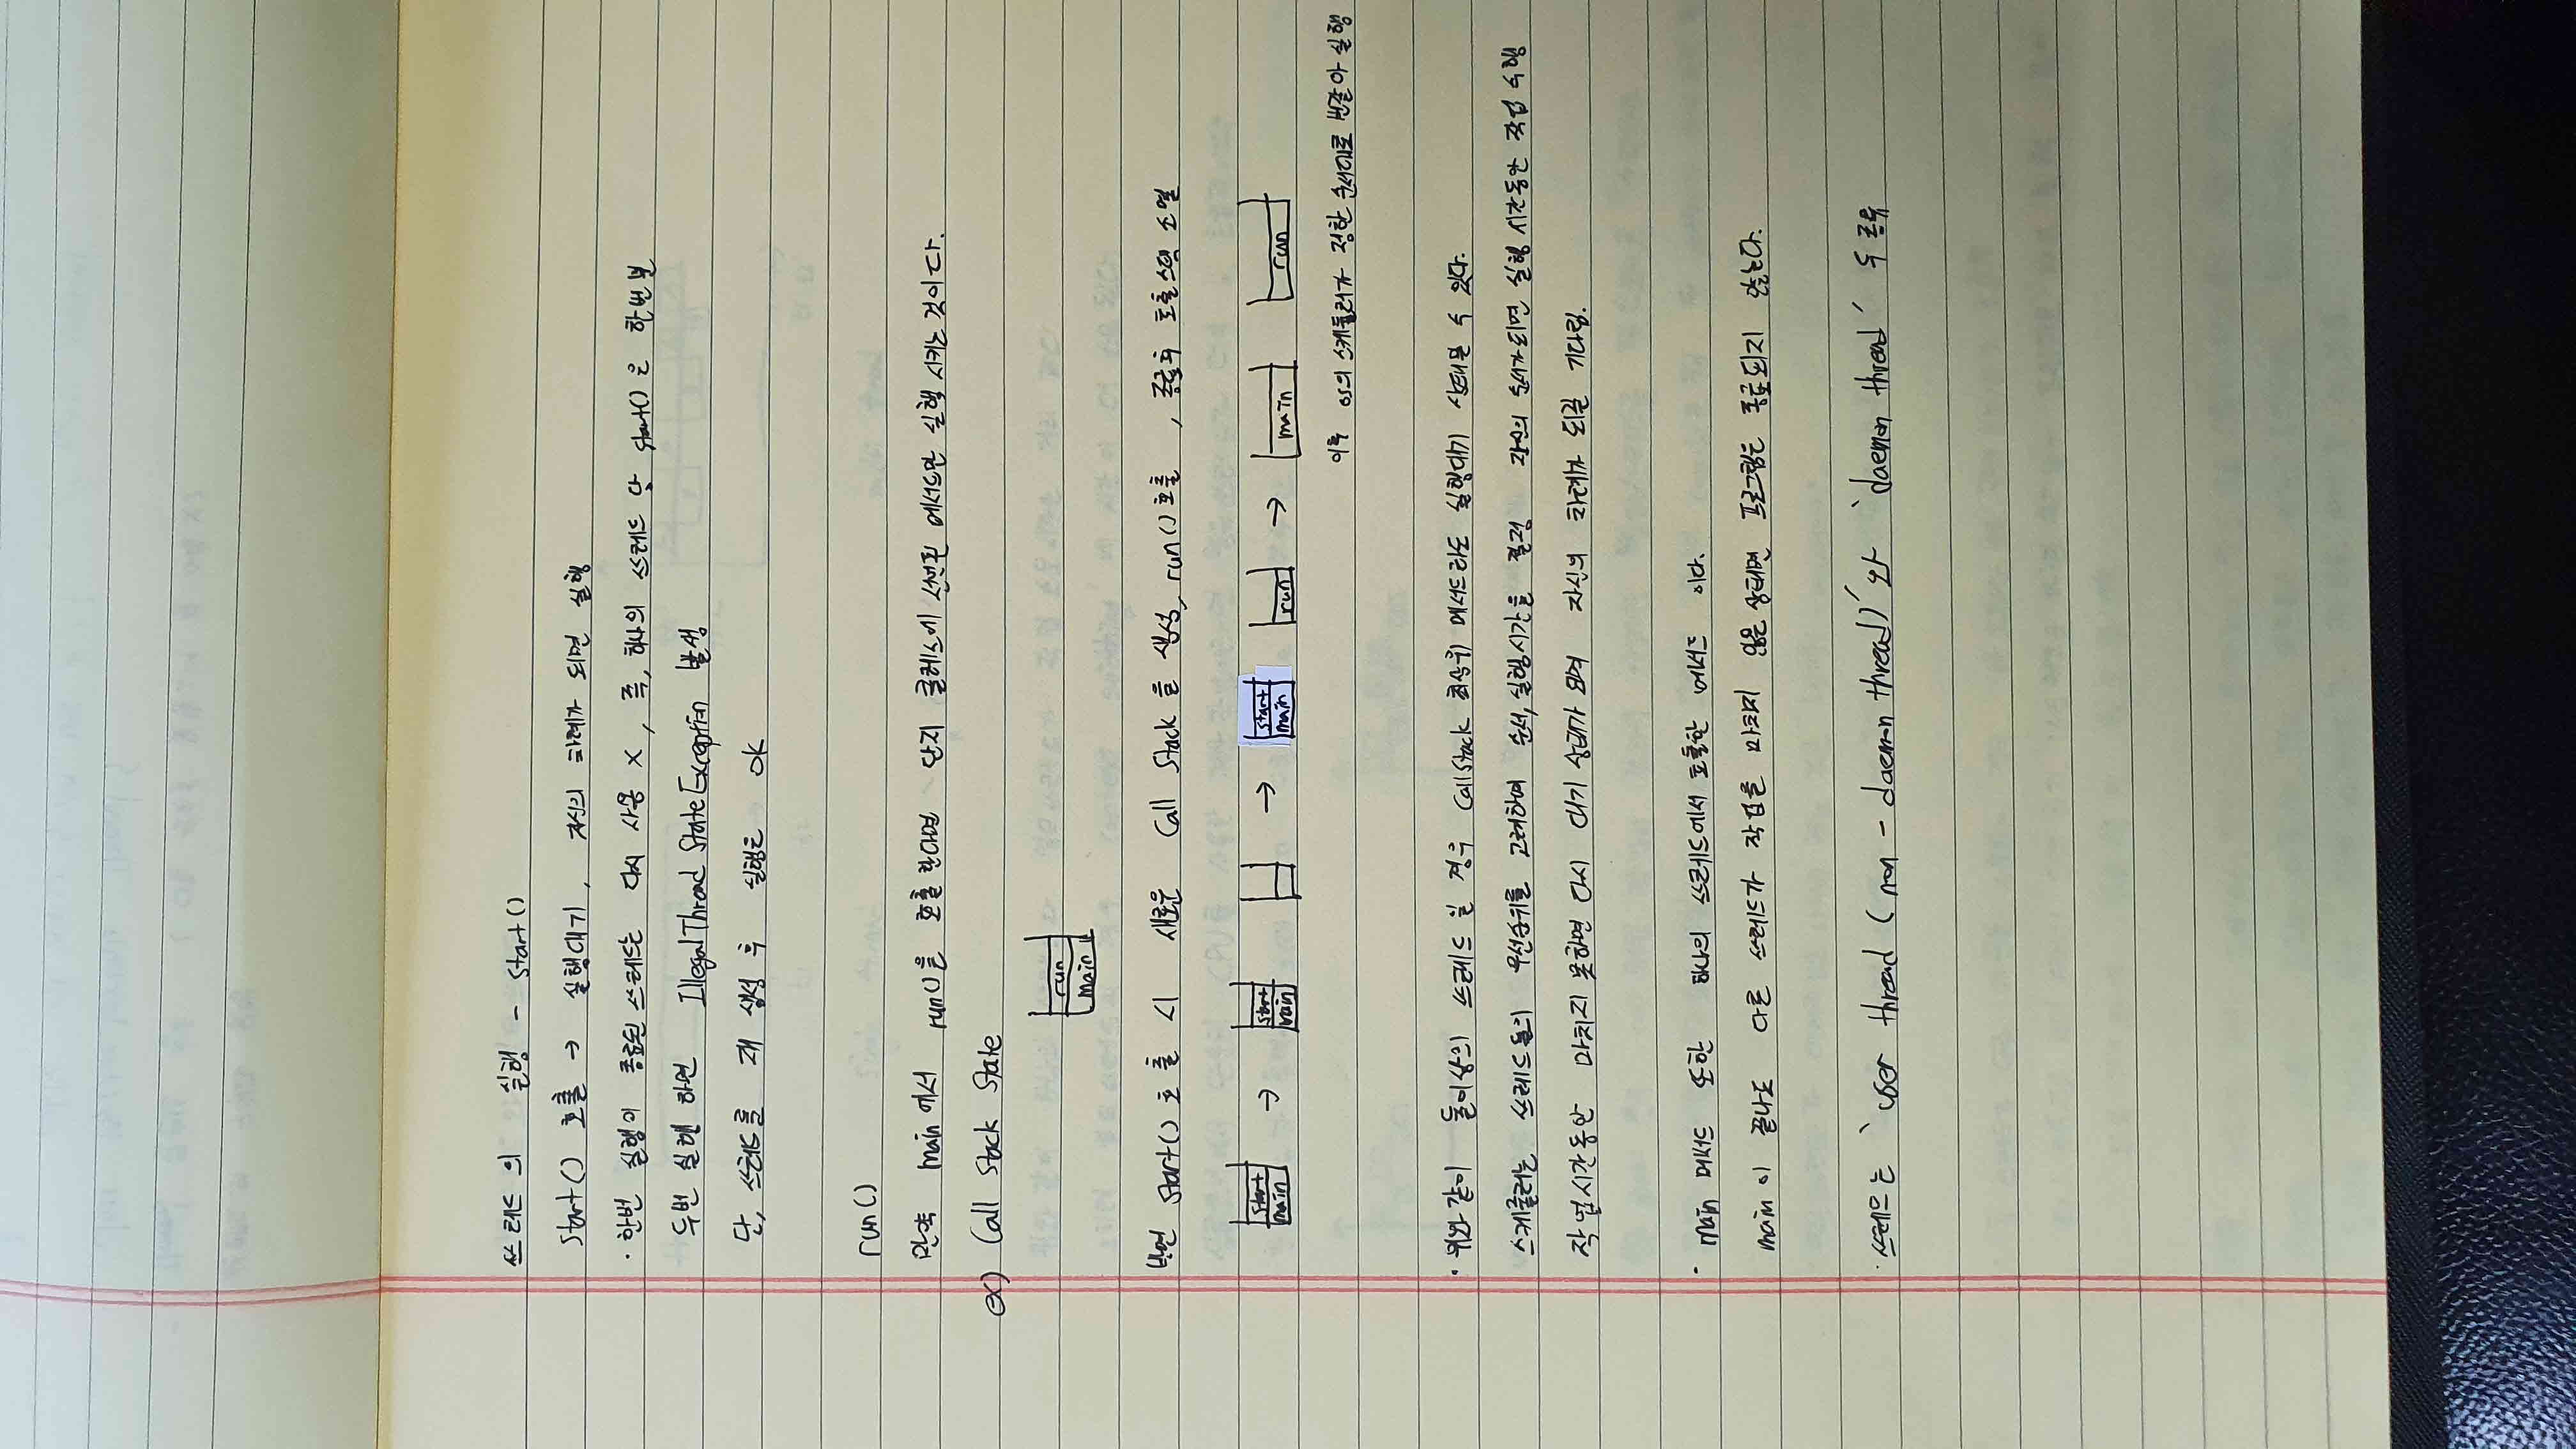 쓰레드의 실행 - start()
start() 호출 → 실행대기, 자신의 차례가 되면 실행
· 한번 실행이 종료된 쓰레드는 다시 사용 X, 즉, 하나의 쓰레드 당 start()은 한번뿐
두번 실행 하면 IllegalThreadStateException 발생
단, 쓰레드를 재 생성 후 실행은 OK
run()
만약 main에서 run()을 호출한다면 단지 클레스에 선언된 메서드만 실행 시키는 것이다.
ex) Call Stack State
run
main
반면 start() 호출 시 새로운 Call Stack을 생성, run() 호출, 종료후 호출스택 소멸
start → start → start →
main main main run main run
이후 os의 스케쥴러가 정한 순서대로 번갈아 실행
· 위와 같이 둘이상의 쓰레드 일 경우 CallStack 최상위 메서드라도 실행대기 상태일 수 있다.
스케쥴러는 쓰레드들의 우선순위를 고려하여 순서, 실행시간을 결정 자신의 순서가되면 실행 시간동안 작업 수행
작업시간동안 마치지 못하면 다시 대기 상태가 되며 자신의 차례가 되길 기다림.
· main 메서드 또한 하나의 쓰레드에서 호출한 메서드 이다.
main이 끝나도 다른 쓰레드가 작업을 마치지 않은 상태면 프로그램은 종료되지 않는다.
· 쓰레드는 'user thread (non - daemon thread)'와 'daemon thread' 두 종류